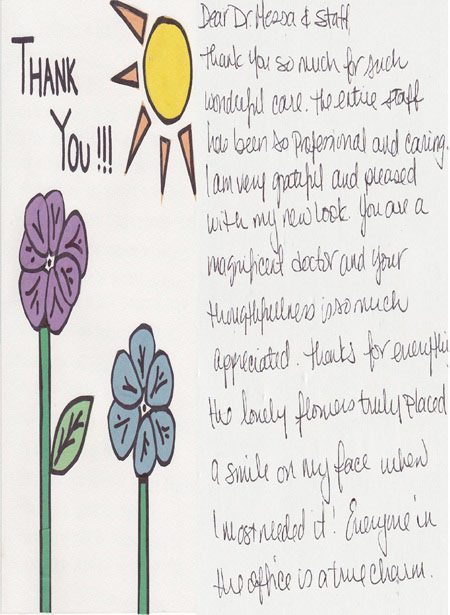 THANK
YOU!!!
Dear Dr. Messa & Staff
Thank you so much for such
wonderful care. The entire staff
has been so professional and caring.
I am very grateful and pleased
with my new look. You are a
magnificent doctor and your
thoughtfullness is so much
appreciated. Thanks for everythi
the lovely flowers truly placed
a smile on my face when
I most needed it! Everyone in
the office is a true charm.